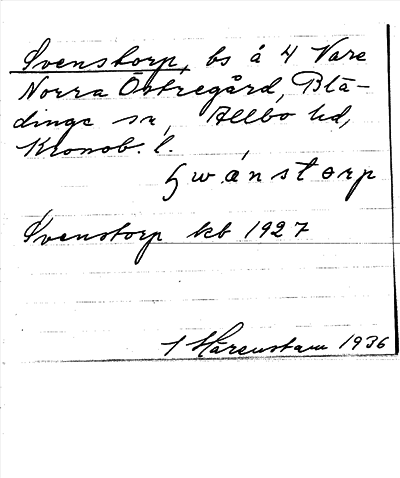 Svenstorp, bs å 4 Vare
Norra Östregård, Blä-
dinge sn, Allbo hd,
Kronob. l.
swánstorp
Svenstorp kb 1927
Hårenstam 1936